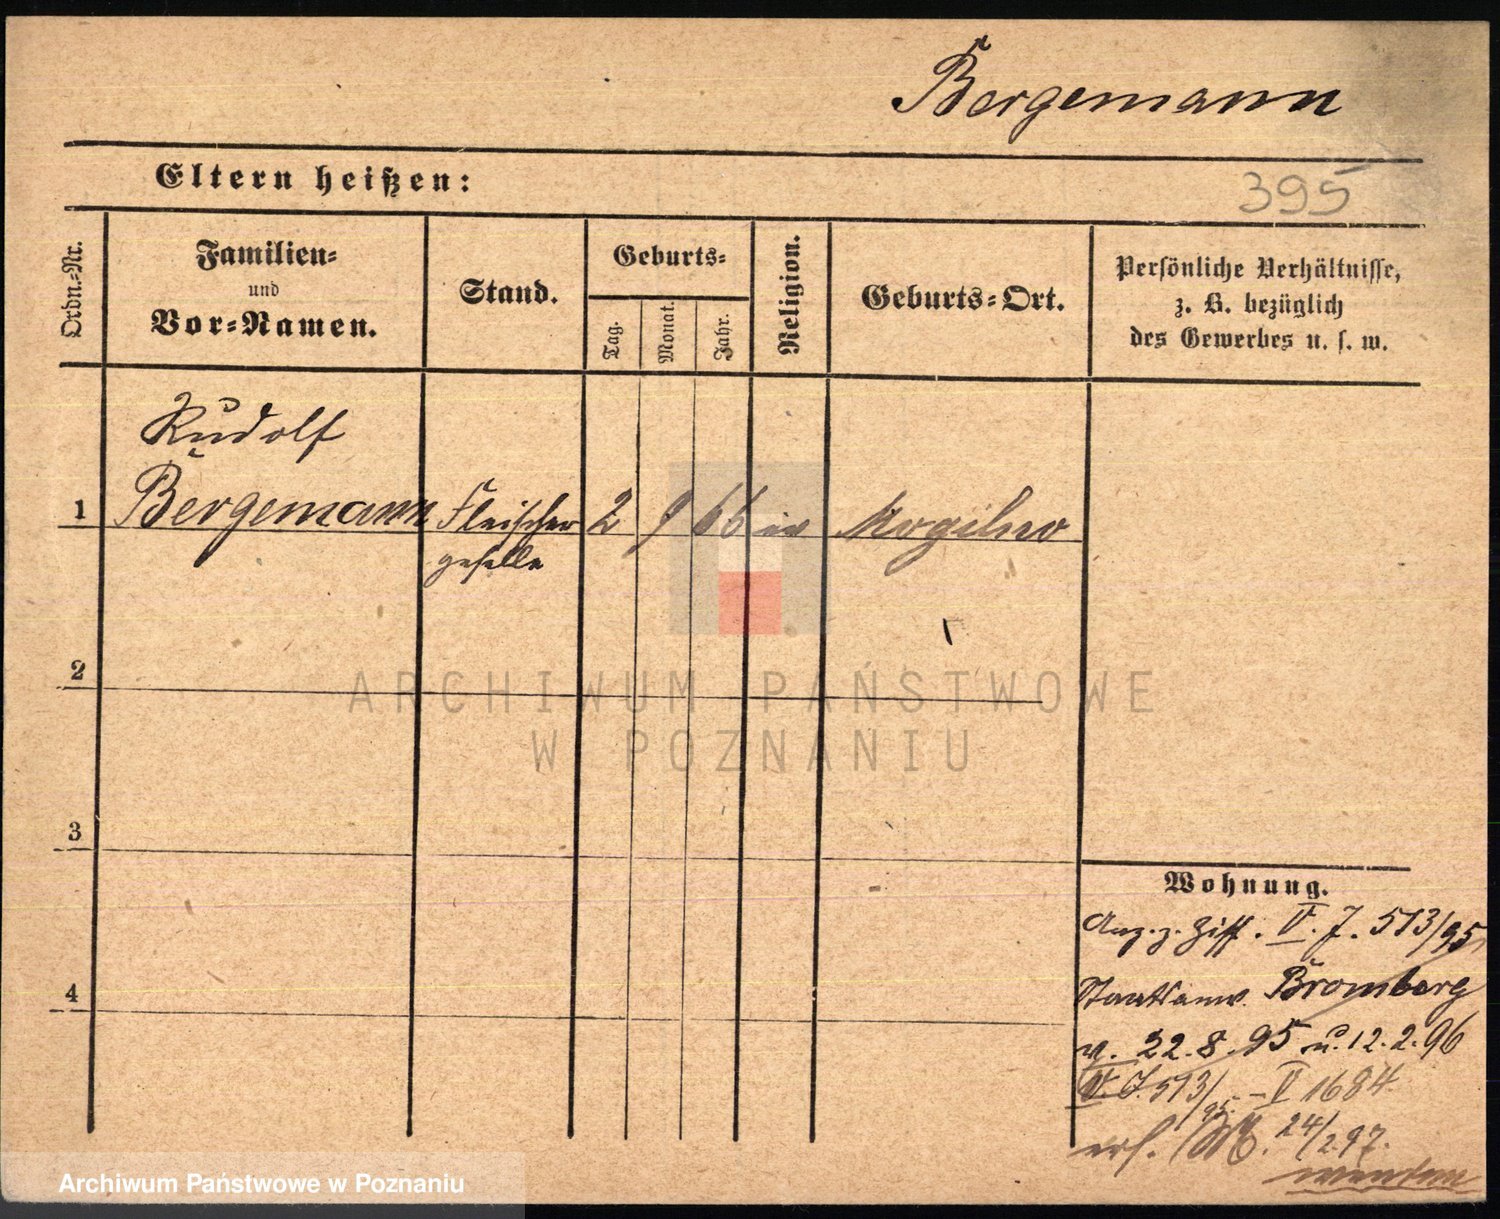 Bergemann
Eltern heißen:
395
Ordn.-Nr.
Familien-
und
Vor-Namen.
Stand.
Geburts-
Tag.
Monat.
Jahr.
Religion.
Geburts-Ort.
Persönliche Verhältnisse,
z. B. bezüglich
des Gewerbes u. s. w.
Rudolf
1 Bergemann Fleischer 2 9 66 Mogilno
geselle
2
ARCHIWUM PAŃSTWOWE
W POZNANIU
3
4
Wohnung.
Anz. z. Ziff. V. J. 513/95
Staatsanw. Bromberg
v. 22.8.95 u. 12.2.96
V. J. 513/95. – V 1684
erl. 24/2.97.
wenden
Archiwum Państwowe w Poznaniu